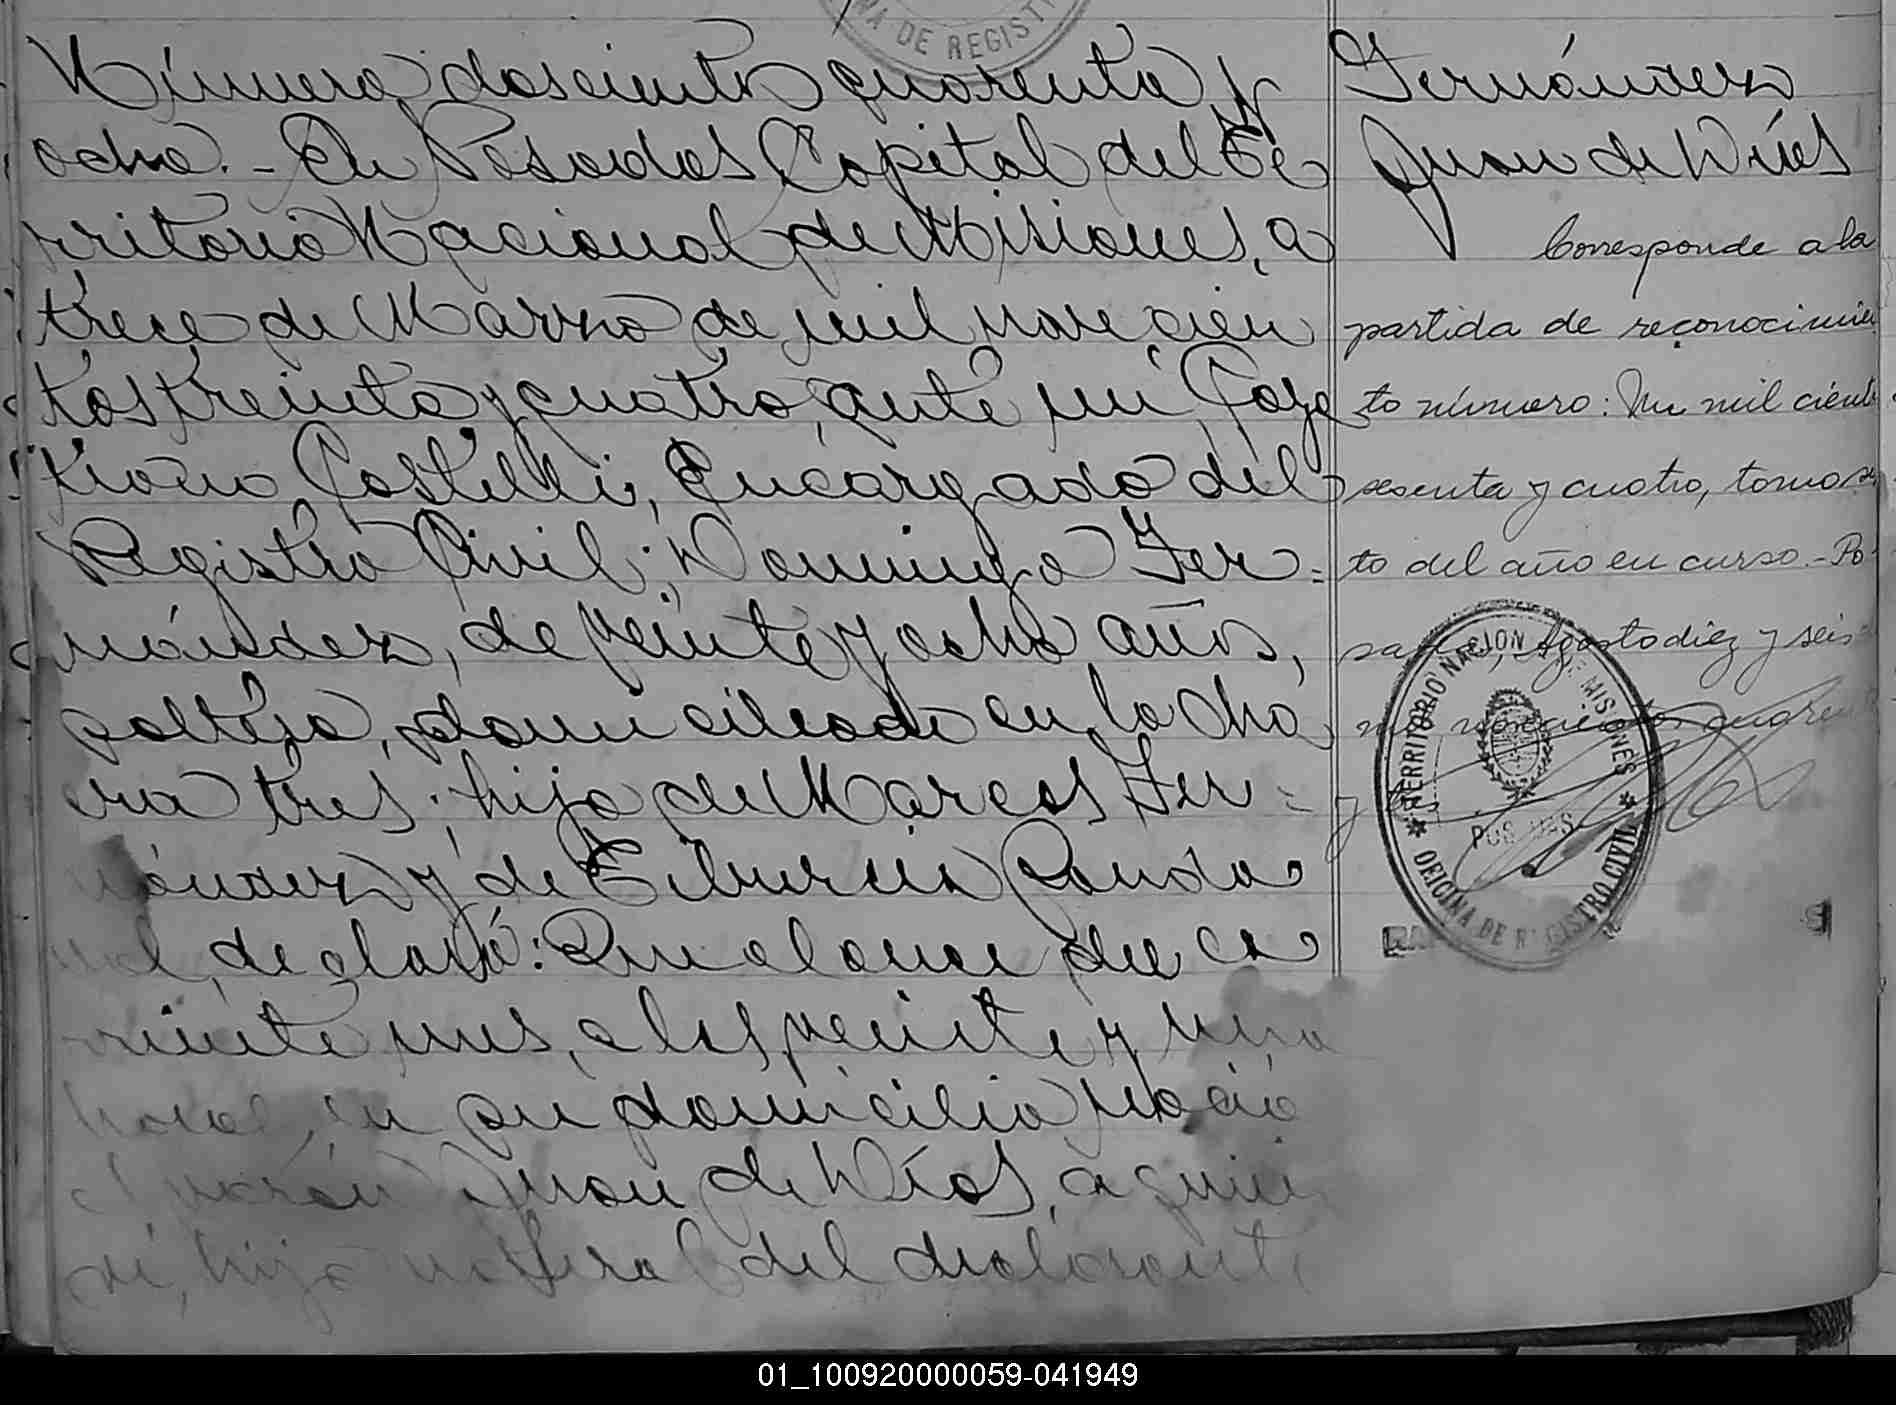 NA DE REGIST
Número doscientos cuarenta y
ocho.- En Posadas Capital del Te
rritorio Nacional de Misiones, a
trece de Marzo de mil novecien
tos treinta y cuatro, ante mi
Castelli, Encargado del
Registro Civil; Domingo Fer=
nández, de veinte y ocho años,
soltero, domiciliado en la cha
cra tres; hijo de Marcos Fer=
nández y de Tiburcia
declaró: Que el once del co
rriente mes, a las veinte y una
horas, en su domicilio nació
el varón Juan de Dios, a quien
vi, hijo natural del declarante
Fernández
Juan de Dios
Corresponde a la
partida de reconocimien
to número: Un mil ciento
sesenta y cuatro, tomo sex
to del año en curso.- Po-
sadas, Agosto diez y seis de
mil novecientos cuarenta
y
TERRITORIO NACIONAL DE MISIONES
POSADAS
OFICINA DE REGISTRO CIVIL
01_100920000059-041949